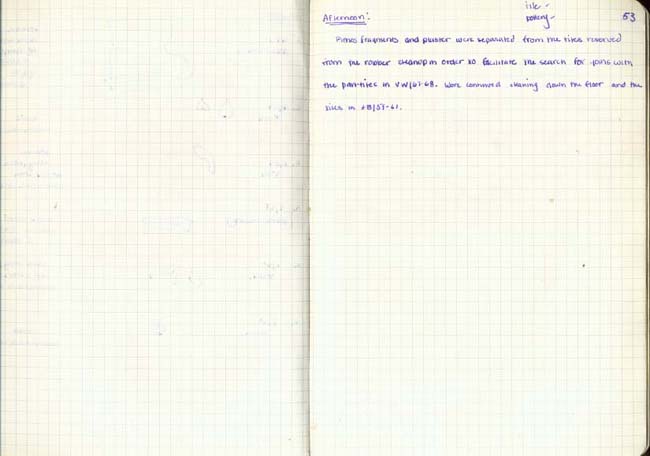 tile -
pottery -
53
Afternoon:
Pithos fragments and plaster were separated from the tiles reserved
from the robber cleanup in order to facilitate the search for joins with
the pan-tiles in VW/67-68. Work continued cleaning down the floor and the
tiles in